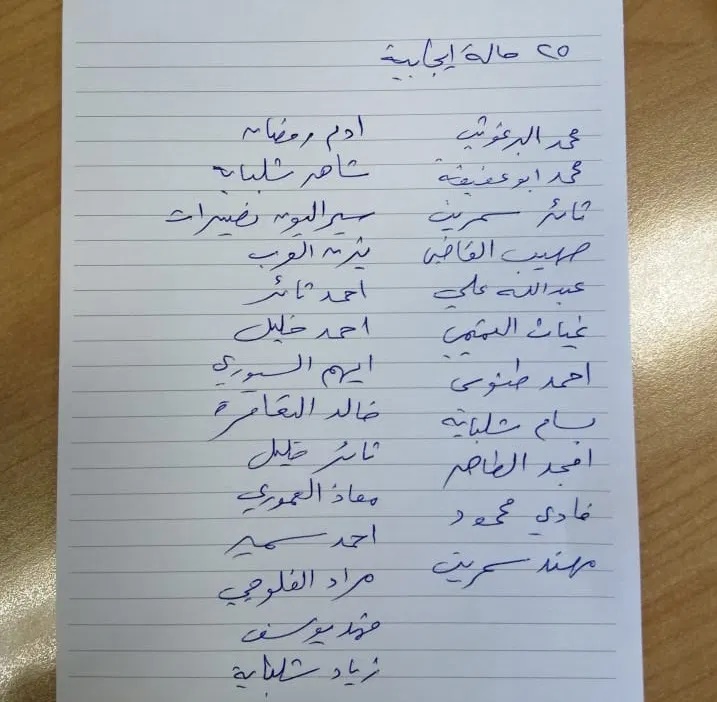 ٢٥ حالة ايجابية
محمد البرغوثي
محمد ابو عفيفة
ثائر سمرين
صهيب القاضي
عبدالله علي
غياث التميمي
احمد طنوس
بسام شلباية
امجد الطاهر
فادي محمود
مهند سمرين
ادم رمضان
شاهر شلباية
سيراليون نصيرات
يزن العرب
احمد ثائر
احمد خليل
ايهم السوري
خالد البقاقرة
ثائر خليل
معاذ العموري
احمد سمير
مراد الفلوجي
فهد يوسف
زياد شلباية